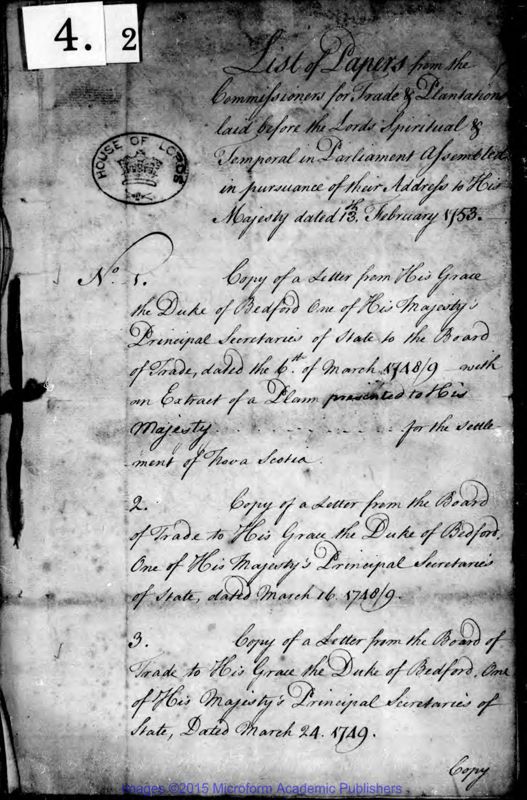 4. 2
List of Papers from the
Commissioners for Trade & Plantations
laid before the Lords Spiritual &
Temporal in Parliament Assembled
in pursuance of their Address to His
Majesty dated 13th. February 1753.
HOUSE OF LORDS
No. 1. Copy of a Letter from His Grace
the Duke of Bedford One of His Majesty's
Principal Secretaries of State to the Board
of Trade, dated the 6th of March 1748/9 with
an Extract of a Plann presented to His
Majesty . . . . . . . . . . for the settle
ment of Nova Scotia.
2. Copy of a Letter from the Board
of Trade to His Grace the Duke of Bedford,
One of His Majesty's Principal Secretaries
of State, dated March 16. 1748/9.
3. Copy of a Letter from the Board of
Trade to His Grace the Duke of Bedford, One
of His Majesty's Principal Secretaries of
State, Dated March 24. 1749.
Copy
Images ©2015 Microform Academic Publishers